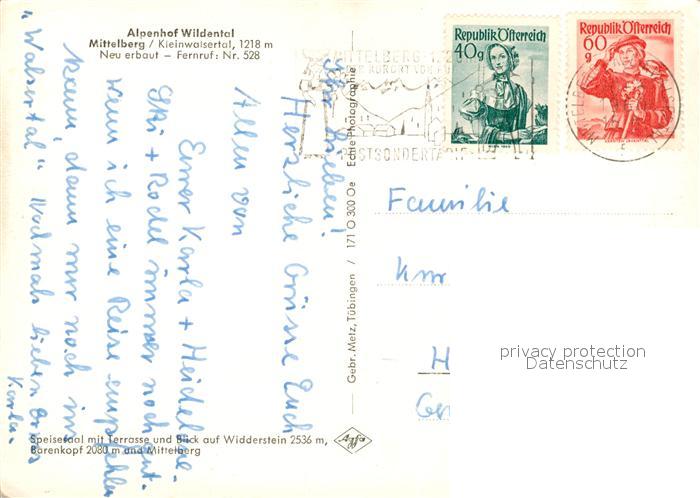 Alpenhof Wildental
Mittelberg / Kleinwalsertal, 1218 m
Neu erbaut – Fernruf: Nr. 528
Republik Österreich
40 g
Republik Österreich
60 g
MITTELBERG
POSTSONDERTARIF
Ihr Lieben!
Herzliche Grüsse Euch
Allen von
Eurer Karla + Heidelore.
Ski + Rodel immer noch gut.
wenn ich eine Reise empfehlen
kann, dann nur noch ins
"Walsertal" Nochmals lieben Gruss
Karla.
Gebr. Metz, Tübingen / 171 O 300 Oe Echte Photographie
Familie
H
privacy protection
Datenschutz
Speisesaal mit Terrasse und Blick auf Widderstein 2536 m,
Bärenkopf 2080 m und Mittelberg
Agfa